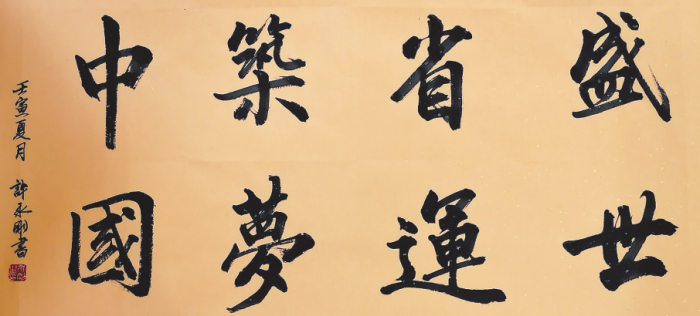 盛世
省運
築夢
中國
壬寅夏月 許永剛書